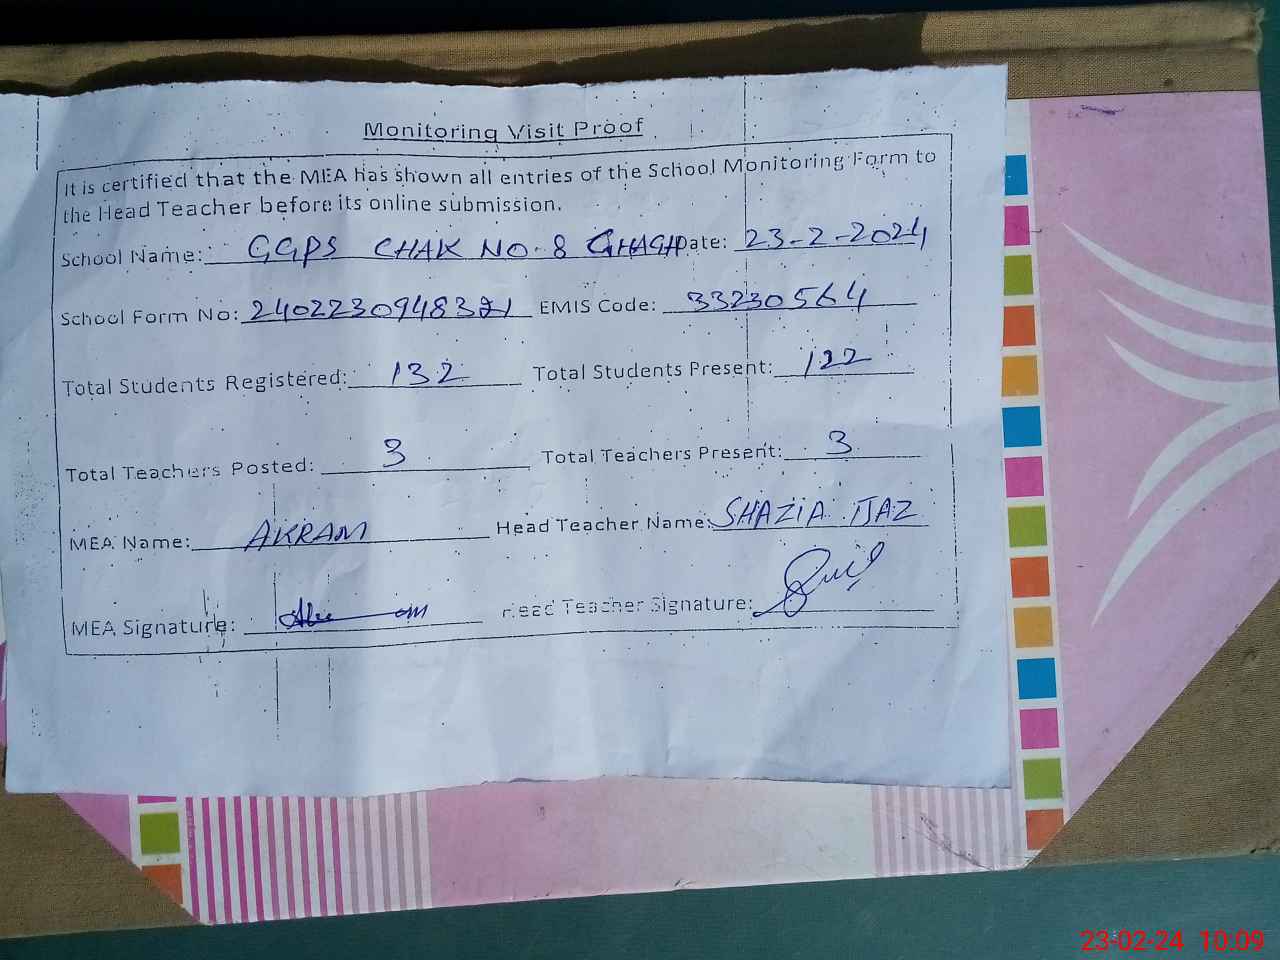 Monitoring Visit Proof
It is certified that the MEA has shown all entries of the School Monitoring Form to
the Head Teacher before its online submission.
School Name: GGPS CHAK NO. 8 GHAGH Date: 23-2-2024
School Form No: 240223094832 EMIS Code: 33230564
Total Students Registered: 132 Total Students Present: 122
Total Teachers Posted: 3 Total Teachers Present: 3
MEA Name: AKRAM Head Teacher Name: SHAZIA IJAZ
MEA Signature: Head Teacher Signature:
23-02-24 10:09